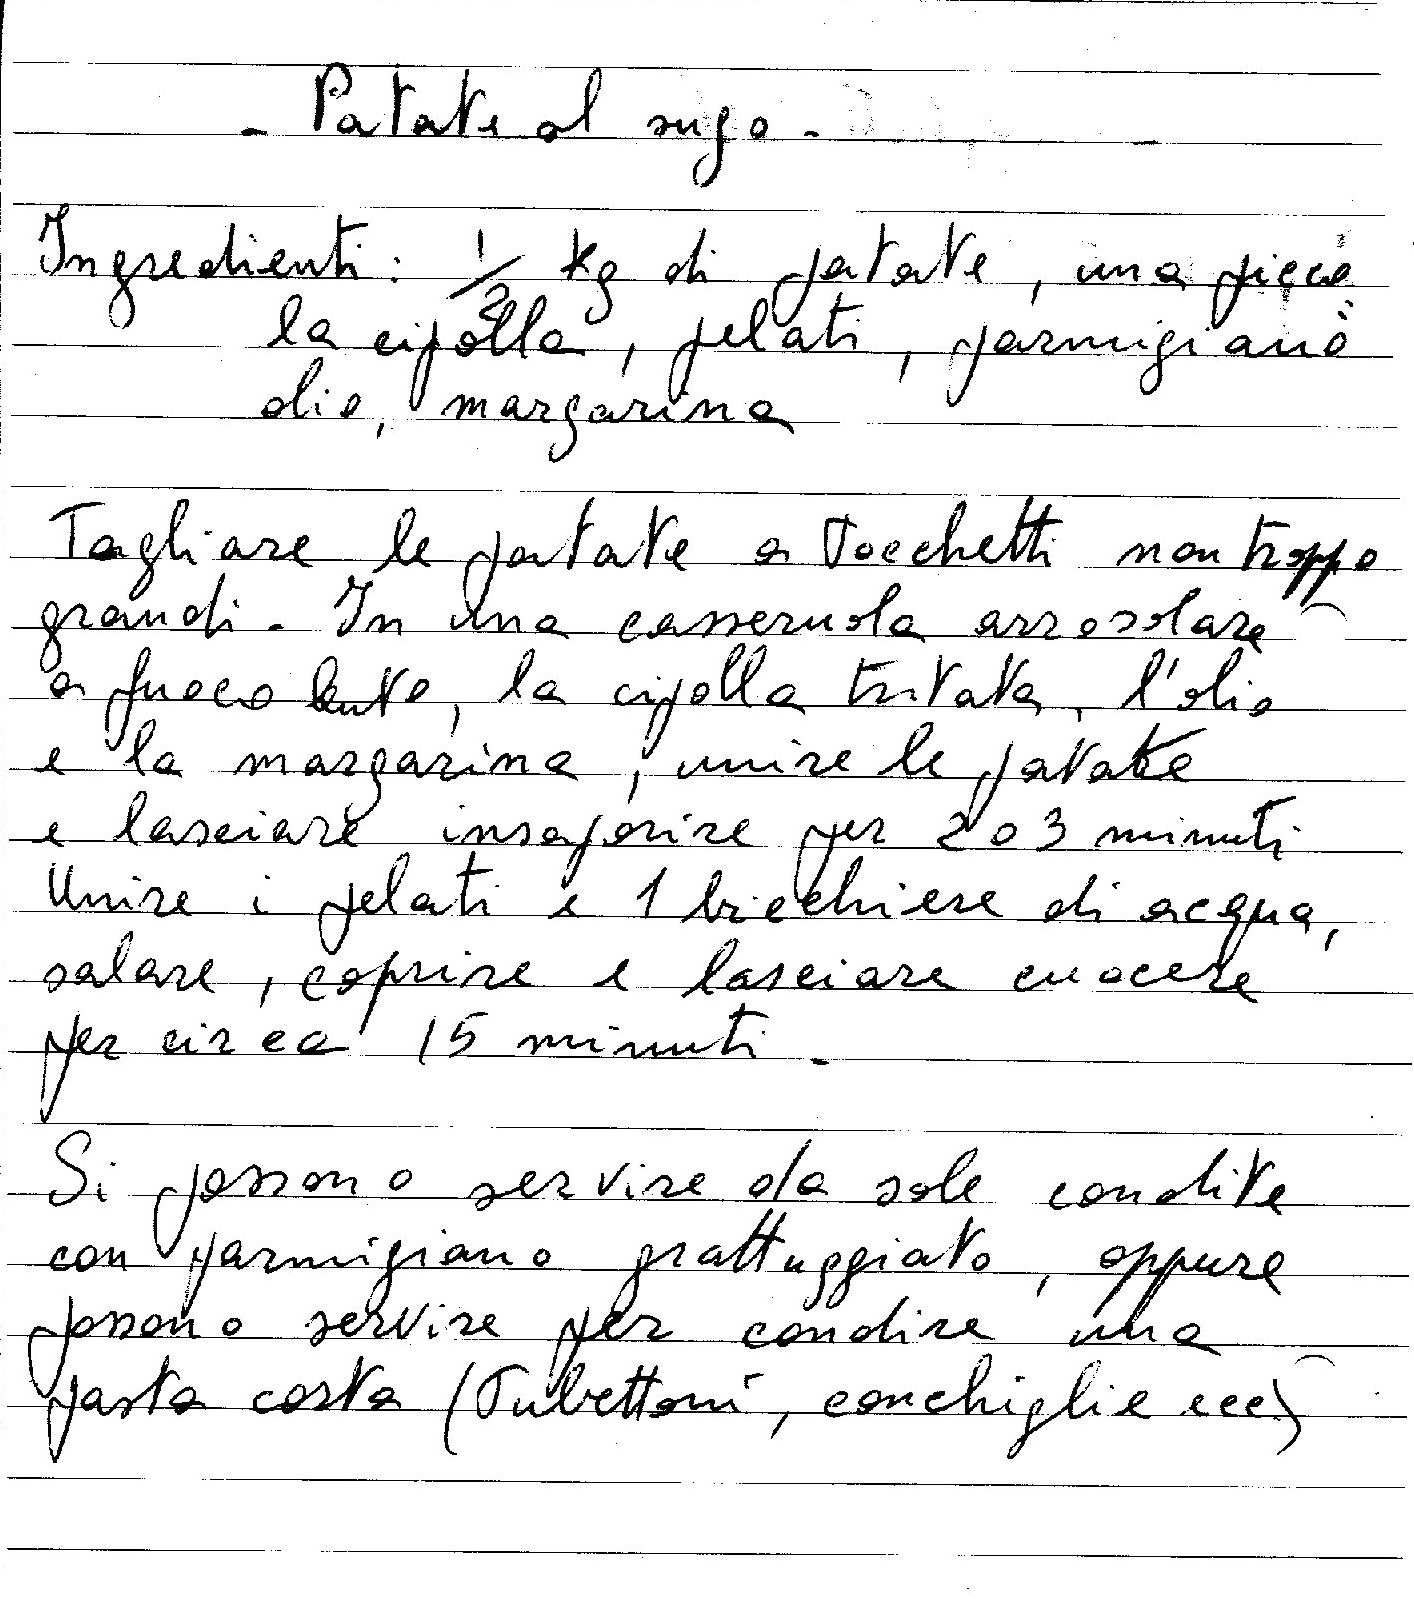 - Patate al sugo -
Ingredienti: 1/2 kg di patate, una picco
la cipolla, pelati, parmigiano
olio, margarina
Tagliare le patate a tocchetti non troppo
grandi. In una casseruola arrosolare
a fuoco lento, la cipolla tritata, l'olio
e la margarina, unire le patate
e lasciare insaporire per 2 o 3 minuti
Unire i pelati e 1 bicchiere di acqua,
salare, coprire e lasciare cuocere
per circa 15 minuti.
Si possono servire da sole condite
con parmigiano grattuggiato, oppure
possono servire per condire una
pasta corta (Tubettoni, conchiglie ecc)